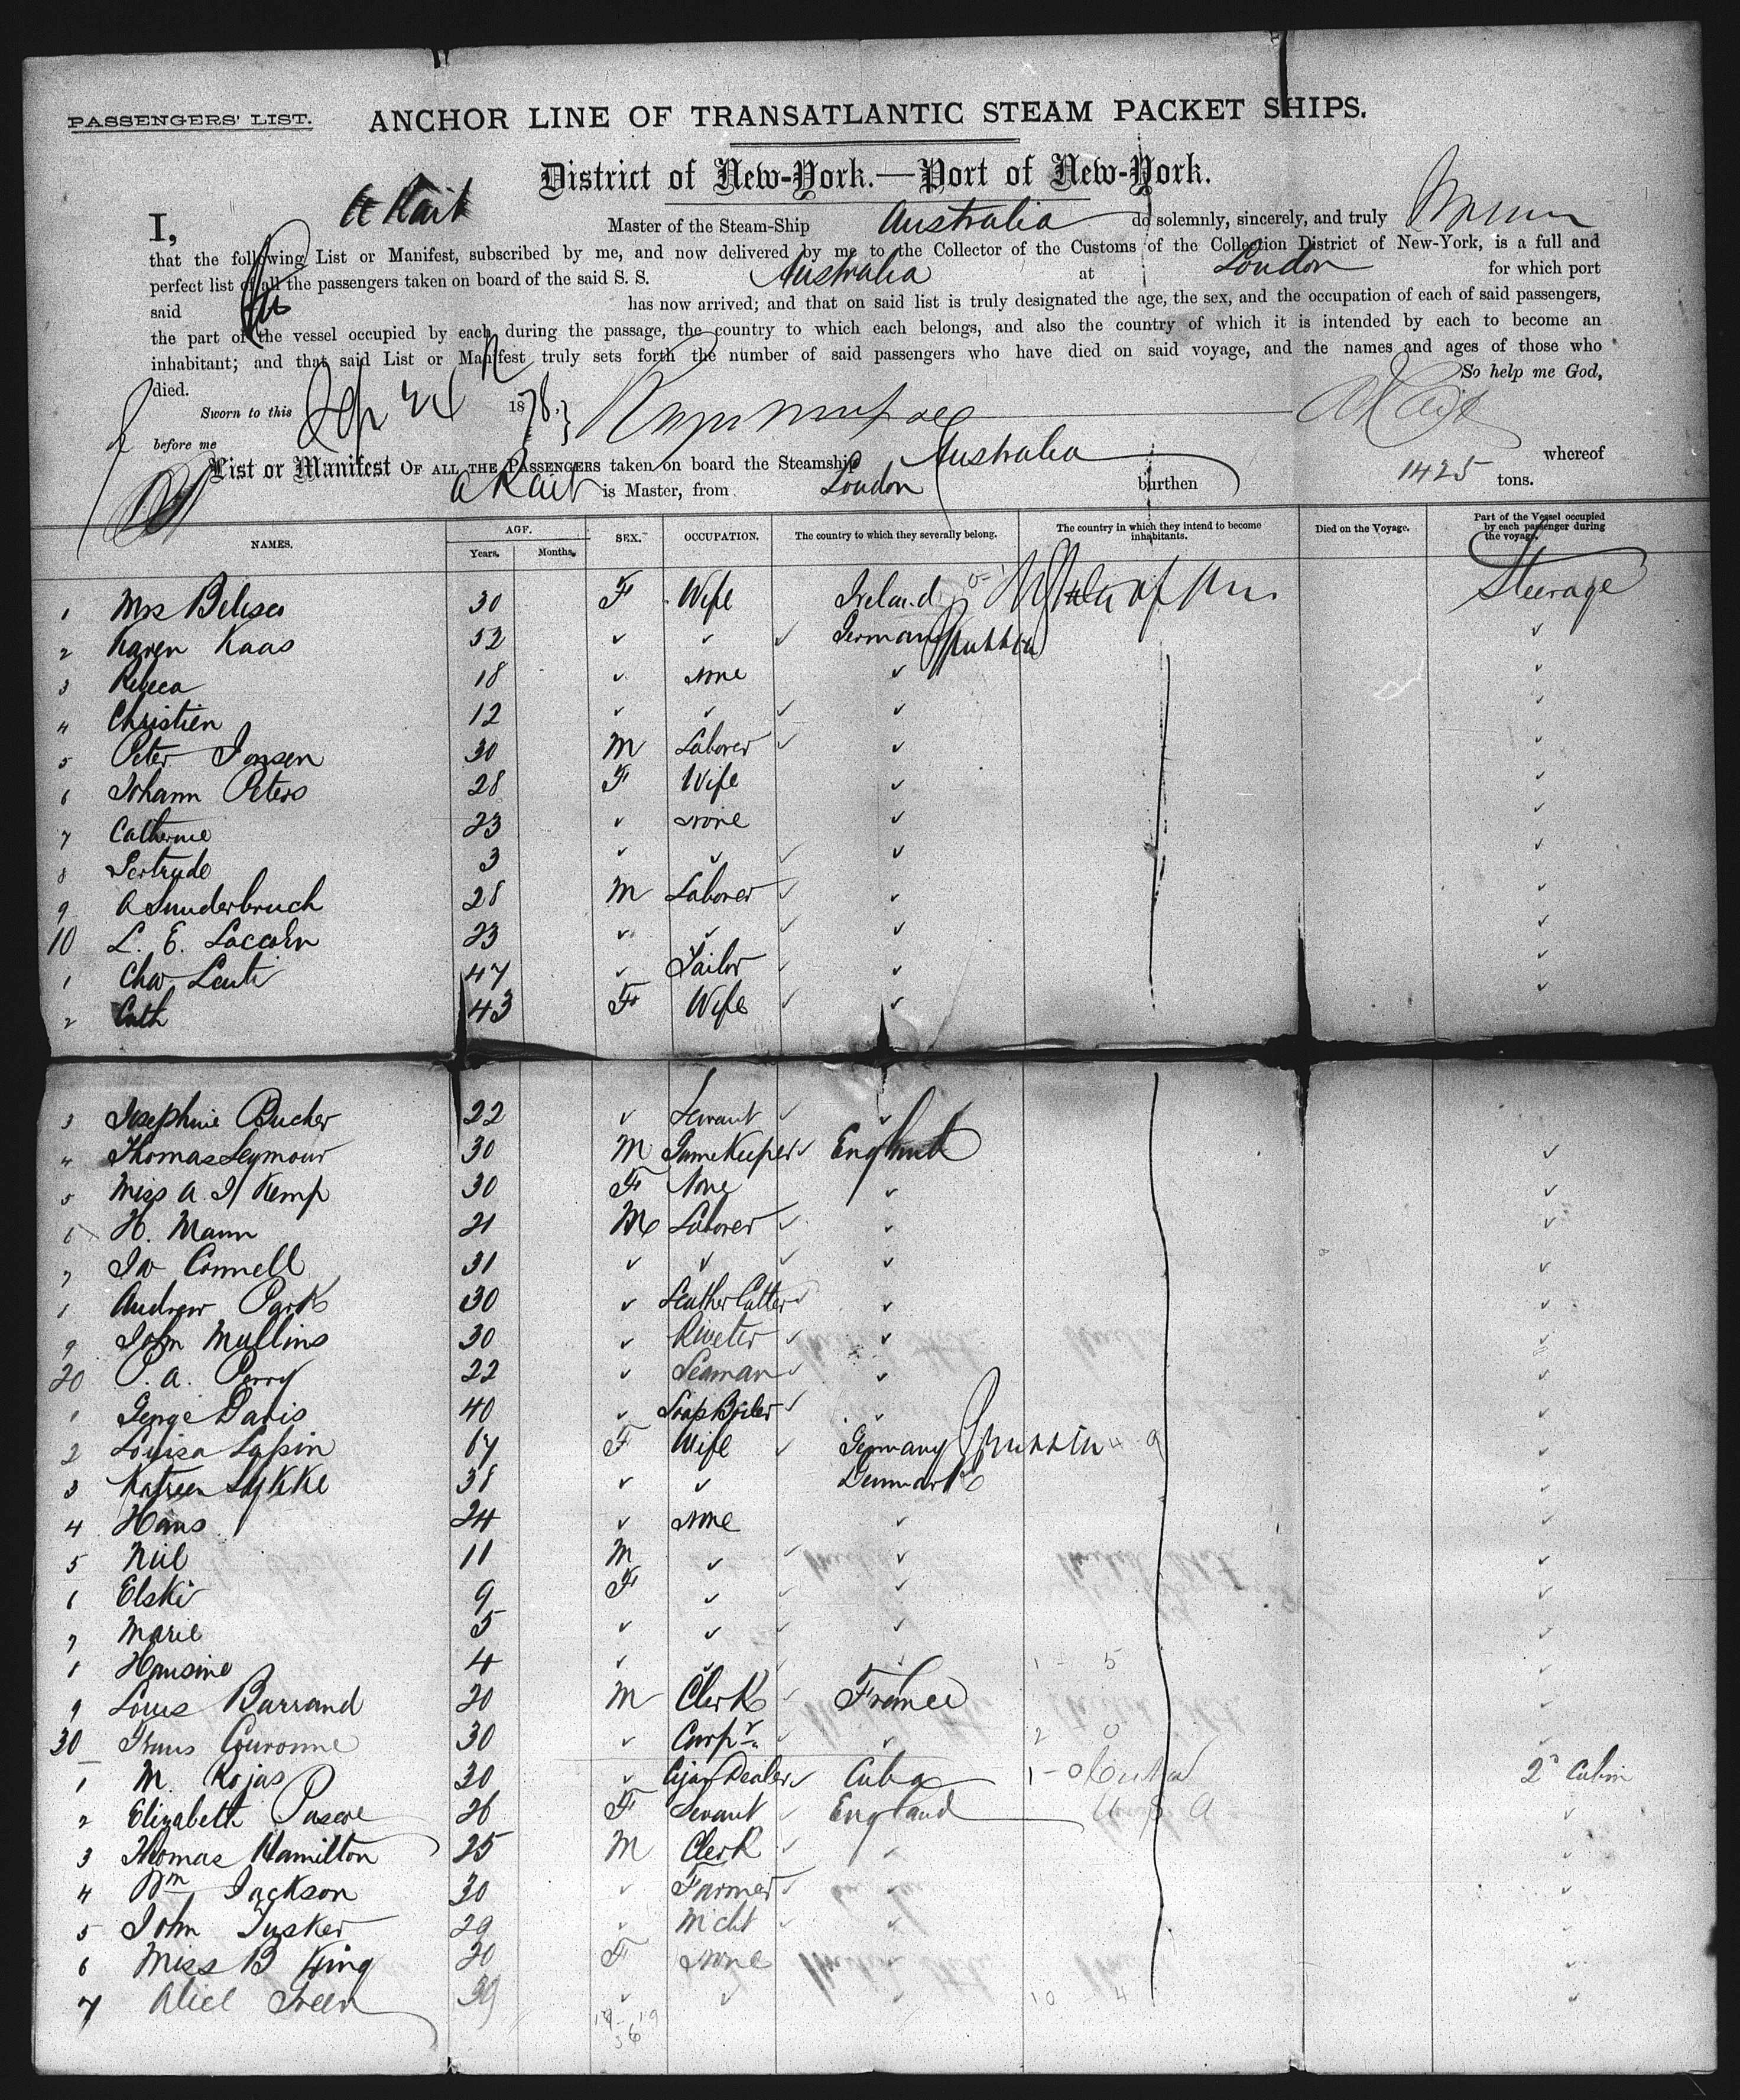 PASSENGERS' LIST. ANCHOR LINE OF TRANSATLANTIC STEAM PACKET SHIPS.
District of New-York.—Port of New-York.
I, A Rait Master of the Steam-Ship Australia do solemnly, sincerely, and truly
that the following List or Manifest, subscribed by me, and now delivered by me to the Collector of the Customs of the Collection District of New-York, is a full and
perfect list of all the passengers taken on board of the said S. S. Australia at London for which port
said has now arrived; and that on said list is truly designated the age, the sex, and the occupation of each of said passengers,
the part of the vessel occupied by each during the passage, the country to which each belongs, and also the country of which it is intended by each to become an
inhabitant; and that said List or Manifest truly sets forth the number of said passengers who have died on said voyage, and the names and ages of those who
died. So help me God,
Sworn to this Sep 24 1878. A Rait
before me
List or Manifest OF ALL THE PASSENGERS taken on board the Steamship Australia whereof
A Rait is Master, from London burthen 1425 tons.
NAMES. AGE. Years. Months. SEX. OCCUPATION. The country to which they severally belong. The country in which they intend to become inhabitants. Died on the Voyage. Part of the Vessel occupied by each passenger during the voyage.
1 Mrs 30 F Wife Ireland Steerage
2 Karen Kaas 52 ✓ ✓ ✓ Germany Prussia ✓
3 Rebeca 18 ✓ None ✓ ✓
4 Christien 12 ✓ ✓ ✓ ✓ ✓
5 Peter Jonsen 30 M Laborer ✓ ✓ ✓
6 Johann Peters 28 F Wife ✓ ✓
7 Catherine 23 ✓ None ✓ ✓
8 Gertrude 3 ✓ ✓ ✓ ✓ ✓
9 A Sunderbruch 28 M Laborer ✓ ✓ ✓
10 L. E. 23 ✓ ✓ ✓ ✓ ✓
1 Chas 47 ✓ Tailor ✓ ✓ ✓
2 Cath 43 F Wife ✓ ✓ ✓
3 Josephine Bucher 22 ✓ Servant ✓ ✓
4 Thomas Seymour 30 M Gamekeeper ✓ England ✓
5 Miss A. H Kemp 30 F None ✓ ✓
6 H. Mann 21 M Laborer ✓ ✓ ✓
7 Connell 31 ✓ ✓ ✓ ✓ ✓
8 Andrew Park 30 ✓ Leather Cutter ✓ ✓ ✓
9 John Mullins 30 ✓ Riveter ✓ ✓ ✓
20 P. A. Perry 22 ✓ Seaman ✓ ✓ ✓
1 George Davis 40 ✓ Soap Boiler ✓ ✓ ✓
2 Louisa Lapin 67 F Wife ✓ Germany Prussia 4 9 ✓
3 Katreen Lykke 38 ✓ ✓ Denmark ✓
4 Hans 24 ✓ None ✓ ✓
5 Neil 11 M ✓ ✓ ✓ ✓
6 Elski 9 F ✓ ✓ ✓ ✓
7 Marie 5 ✓ ✓ ✓ ✓ ✓
8 Hansine 4 ✓ ✓ ✓ ✓ 1 - 5 ✓
9 Louis Barrand 20 M Clerk ✓ France ✓
30 Couronne 30 ✓ Carpr ✓ ✓ 2 0 ✓
1 M. Rojas 30 ✓ Cigar Dealer ✓ Cuba 1 - 0 Cuba 2d Cabin
2 Elizabeth Pascoe 26 F Servant ✓ England U S A ✓
3 Thomas Hamilton 25 M Clerk ✓ ✓ ✓
4 Wm Jackson 30 ✓ Farmer ✓ ✓ ✓
5 John Tusker 29 ✓ Mcht ✓ ✓ ✓
6 Miss B King 20 F None ✓ ✓
7 Alice Green 39 ✓ ✓ ✓ 10 4 ✓